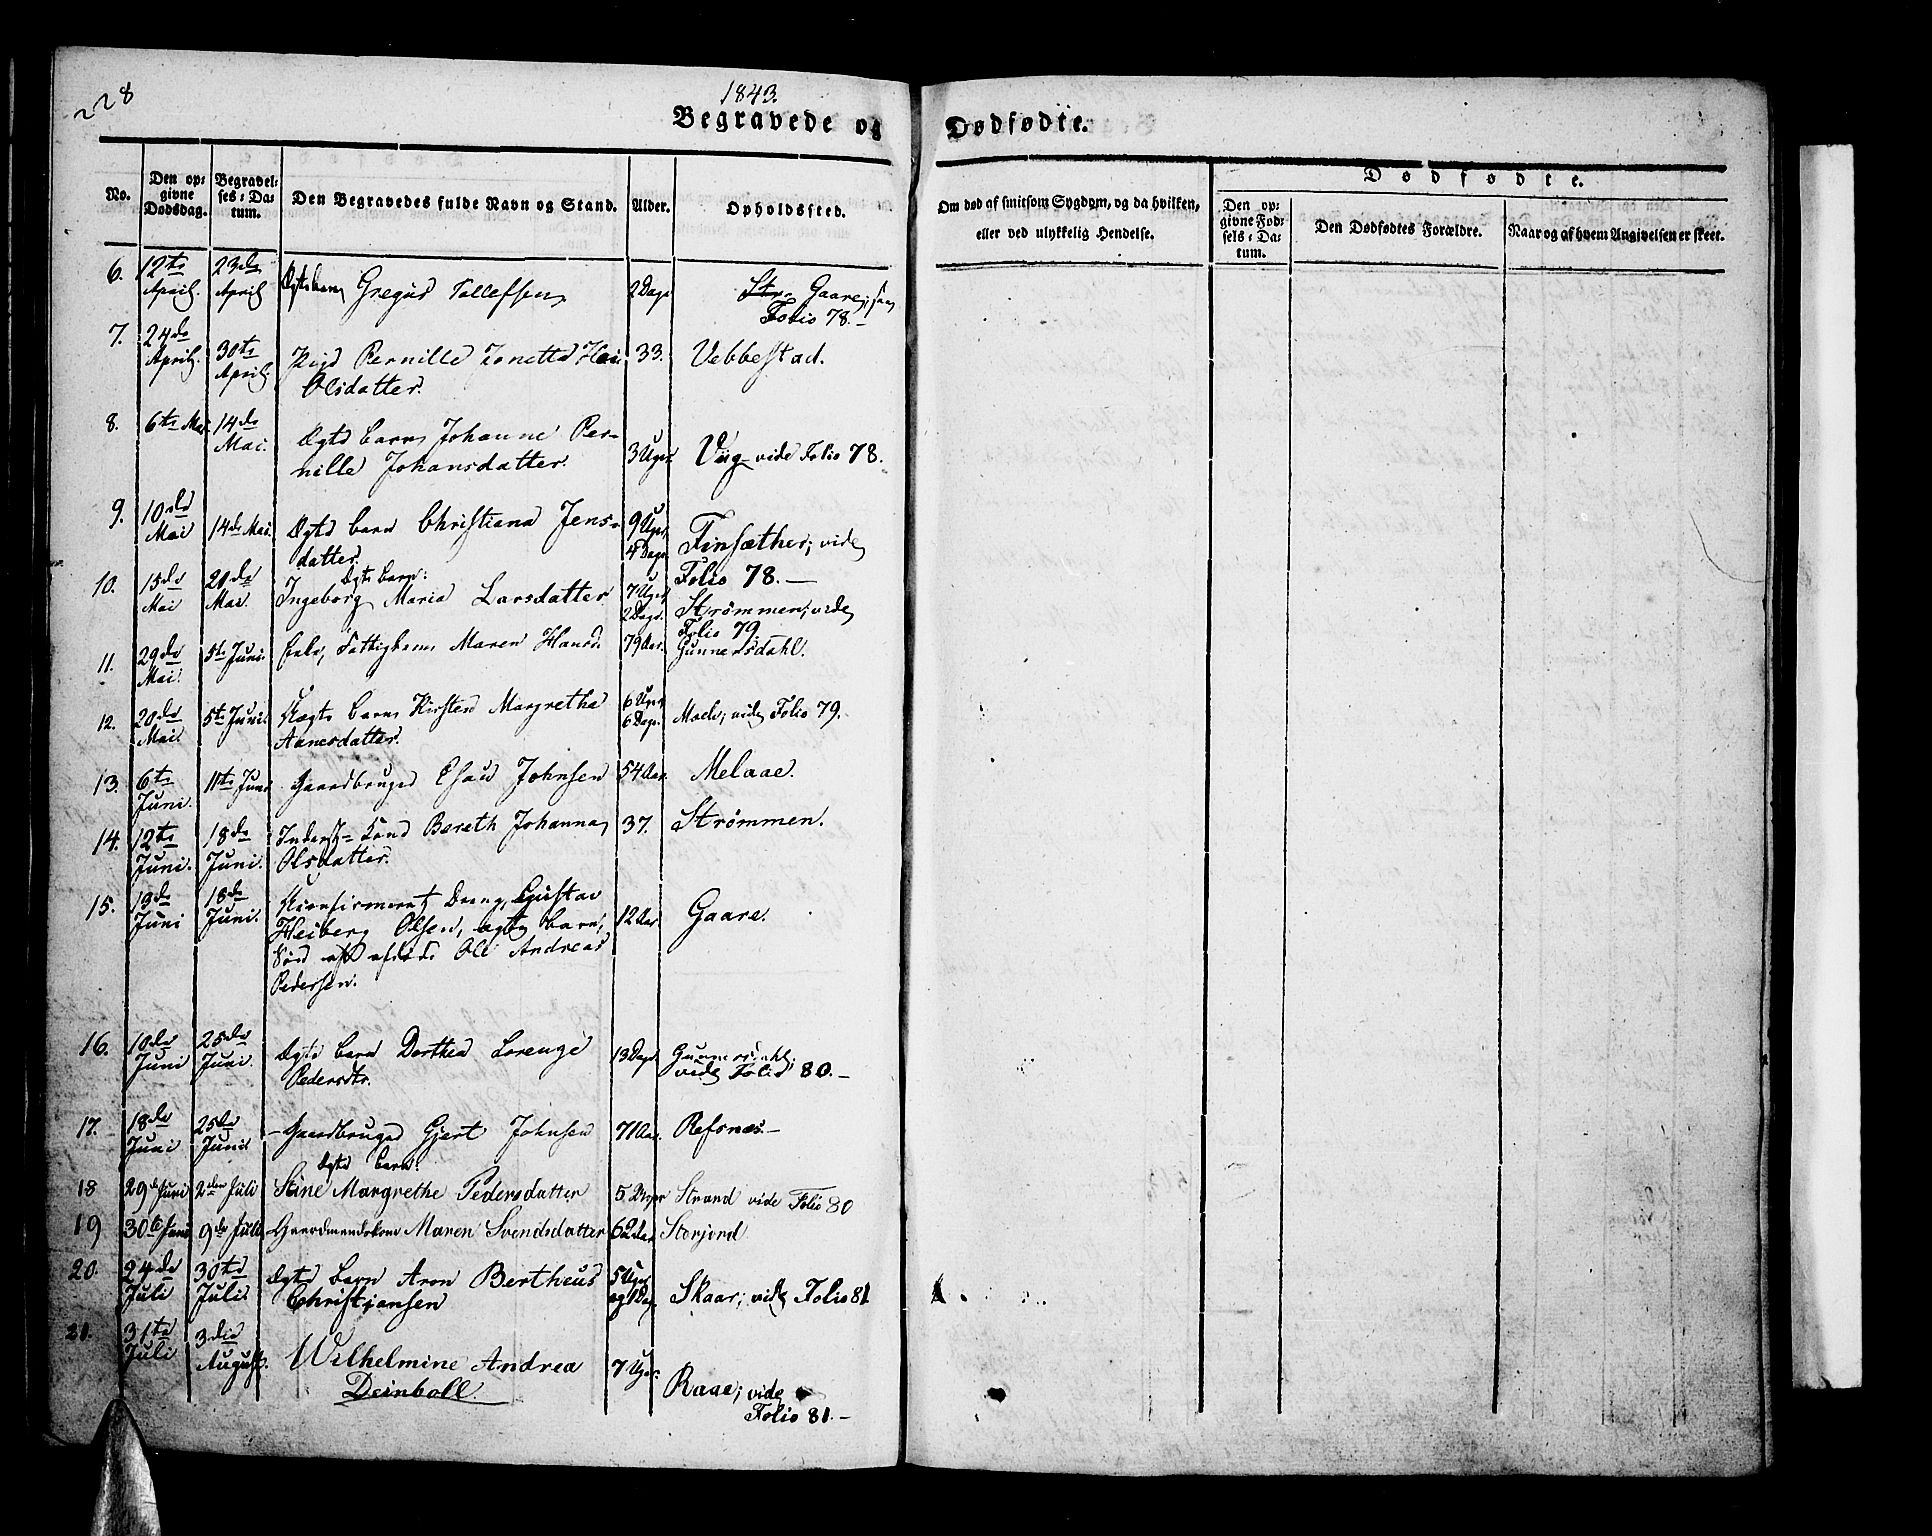 228
1843.
Begravede og Dødfødte.
No.
Den op-
givne
Dødsdag.
Begravel-
ses-Da-
tum.
Den Begravedes fulde Navn og Stand.
Alder.
Opholdssted.
Om død af smitsom Sygdom, og da hvilken,
eller ved ulykkelig Hendelse.
Dødfødte.
Den op-
givne Fød-
sels-Da-
tum.
Den Dødfødtes Forældre.
Naar og af hvem Angivelsen er skeet.
6. 12te April. 23de April Gregus Tollefsen 2 Dage Gaare,
Folio 78.
7. 24de April. 30te April Pernille Zonetta
Olsdatter. 33. Vebbestad.
8. 6te Mai 14de Mai. Ægte barn Johanne Per-
nille Johansdatter. 3 Uger Viig vide Folio 78.
9. 10de Mai 14de Mai. Ægte barn Christiana Jens-
datter. 9 Uger 4 Dage Finsæther, vide
Folio 78.
10. 15de Mai Mai. Ægte barn:
Ingeborg Maria Larsdatter 7 Uger 2 Dage. Strømmen, vide
Folio 79.
11. 29de Mai. 5te Juni. Maren Hansd. 79 Aar. Gunnersdahl.
12. 20de Mai. 5te Juni. barn Kirsten Margretha
Aanesdatter. 6 Uger 6 Dage. vide Folio 79.
13. 6te Juni. 11te Juni Gaardbruger Esaus Johnsen 54 Aar. Melaae.
14. 12te Juni. 18de Juni. Bereth Johanna
Olsdatter. 37. Strømmen.
15. 13de Juni 18de Juni. Dreng, Gustav
Heiberg Olsen, ægte barn,
Ole Andreas
Pedersen. 12 Aar. Gaare.
16. 10de Juni 25de Juni. Ægte barn Dorthea Lorenze
Pedersdtr. 13 Dage Gunnersdahl,
vide Folio 80.
17. 18de Juni 25de Juni. Gaardbruger Gjert Johnsen 71 Aar. Refsnes.
Ægte barn:
18 29de Juni 2den Juli Stine Margrethe Pedersdatter 5 Uger Strand vide Folio 80
19 30te Juni 9de Juli Gaardmandskone Maren Svendsdatter 62 Aar Storjord
20. 24de Juli 30te Juli. Ægte barn Aron Bertheus
Christjansen 5 Uger og 1 Dag Skaar, vide Folio 81
21. 31te Juli 3die August. Wilhelmine Andrea
Deinboll. 7 Uger Raae, vide
Folio 81.